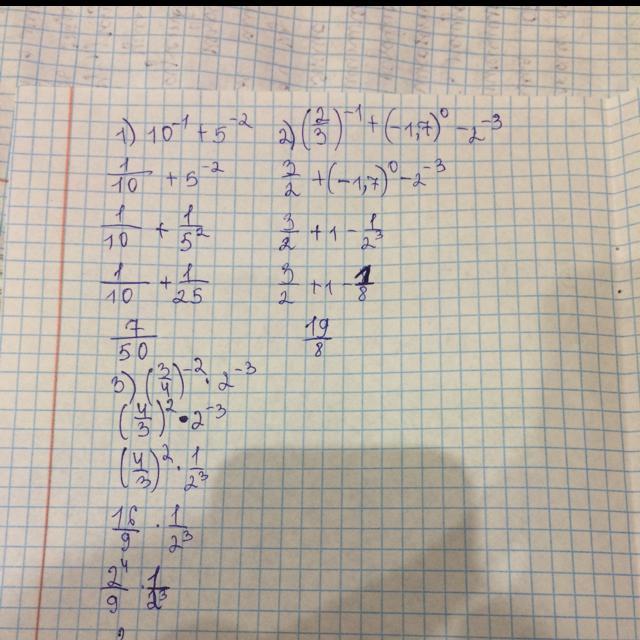 1) 10⁻¹ + 5⁻²
1/10 + 5⁻²
1/10 + 1/5²
1/10 + 1/25
7/50
2) (2/3)⁻¹ + (-1,7)⁰ - 2⁻³
3/2 + (-1,7)⁰ - 2⁻³
3/2 + 1 - 1/2³
3/2 + 1 - 1/8
19/8
3) (3/4)⁻² · 2⁻³
(4/3)² · 2⁻³
(4/3)² · 1/2³
16/9 · 1/2³
2⁴/9 · 1/2³
2